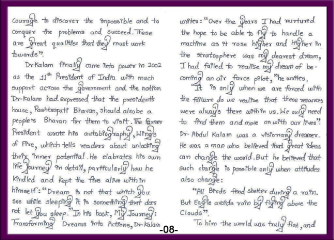 Courage to discover the impossible and to
conquer the problems and succeed. These
are great qualities that they must work
towards".
Dr Kalam finally came into power in 2002
as the 11th President of India with much
support across the government and the nation.
Dr. Kalam had expressed that the presidents
house, Rashtrapati Bhavan, should also be a
peoples Bhavan for them to visit. The former
President wrote his autobiography, Wings
of Fire, which tells readers about unlocking
their inner potential. He elaborates his own
life journey in detail, particularly how he
kindled and kept the fire alive within
himself: "Dream is not that which you
see while sleeping it is something that does
not let you sleep. In his book, My Journey:
Transforming Dreams into Actions, Dr. Kalam
writes: "Over the years I had nurtured
the hope to be able to fly; to handle a
machine as it rose higher and higher in
the stratosphere was my dearest dream,
I had failed to realise my dream of be-
coming an air force pilot," he writes.
It is only when we are faced with
the failure do we realise that these resources
were always there within us. We only need
to find them and move on with our lives"
Dr Abdul Kalam was a visionary dreamer.
He was a man who believed that great ideas
can change the world. But he believed that
such change is possible only when attitudes
also change:
"All Birds find shelter during a rain.
But Eagle avoids rain by flying above the
Clouds".
To him the world was truly flat, and
-08-